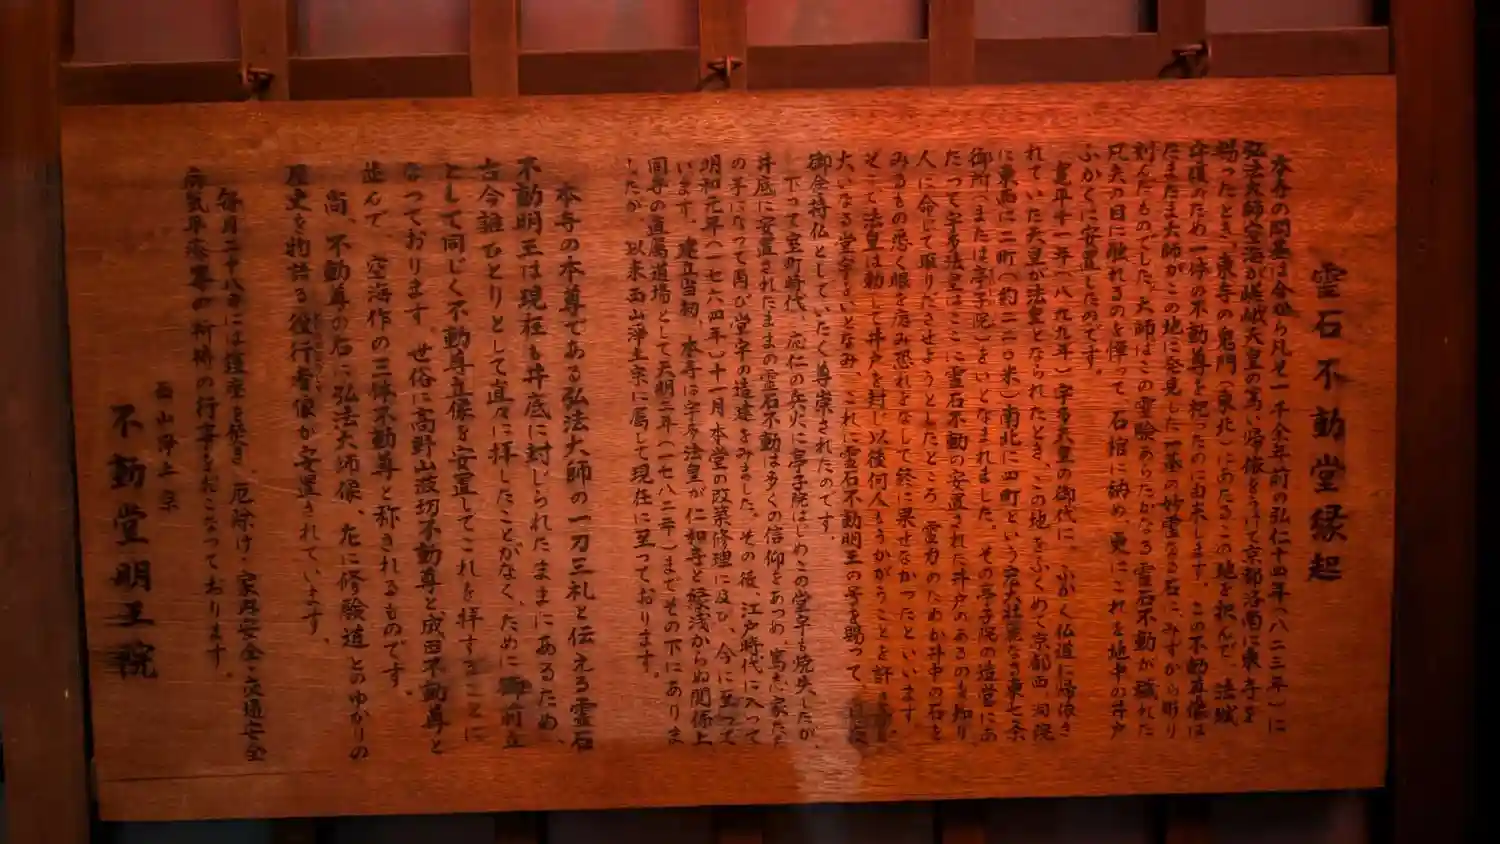 霊石不動堂縁起
本寺の開基は今から凡そ一千余年前の弘仁十四年(八二三年)に
弘法大師空海が嵯峨天皇の高い帰依をうけて京都洛南に東寺を
賜ったとき、東寺の鬼門(東北)にあたるこの地を択んで、法城
守護のため一体の不動尊を祀ったのに由来します。この不動尊像は
たまたま大師がこの地に発見した一基の妙霊なる石にみずから彫り
刻んだものでした。大師はこの霊験あらたかなる霊石不動が穢れた
凡夫の目に触れるのを憚って、石棺に納め、更にこれを地中の井戸
ふかくに安置したのです。
寛平十一年(八九九年)宇多天皇の御代に、ふかく仏道に帰依さ
れていた天皇が法皇となられたとき、この地をふくめて京都西洞院
に東西に二町(約二二〇米)南北に四町という宏大壮麗なる東七条
御所(または亭子院)をいとなまれました。その亭子院の造営にあ
たって宇多法皇はここに霊石不動の安置された井戸のあるのを知り
人に命じて取りださせようとしたところ、霊力のためか井中の石を
みるもの悉く眼を廻み恐れをなして終に果せなかったといいます。
そこで法皇は勅して井戸を封じ以後何人もうかがうことを許
大いなる堂宇をいとなみ、これに霊石不動明王の号を賜って
御念持仏としていたく尊崇されたのです。
下って室町時代、応仁の兵火に亭子院はじめこの堂宇も焼失したが、
井底に安置されたままの霊石不動は多くの信仰をあつめ、篤志家たち
の手になって再び堂宇の造建をみました。その後、江戸時代に入って
明和元年(一七六四年)十一月本堂の改築修理に及び、今に至って
います。建立当初、本寺は宇多法皇が仁和寺と縁浅からぬ関係上
同寺の直属道場として天明二年(一七八二年)までその下にありま
したが、以来西山浄土宗に属して現在に至っております。
本寺の本尊である弘法大師の一刀三礼と伝える霊石
不動明王は現在も井底に封じられたままにあるため、
古今誰ひとりとして直々に拝したことがなく、ために御前立
として同じく不動尊立像を安置してこれを拝することに
なっております。世俗に高野山波切不動尊と、成田不動尊と
並んで、空海作の三体不動尊と称されるものです。
尚、不動尊の右に弘法大師像、左に修験道とのゆかりの
歴史を物語る役行者像が安置されています。
毎月二十八日には護摩を焚き、厄除け・家内安全・交通安全
病気平癒等の祈祷の行事をおこなっております。
西山浄土宗
不動堂明王院